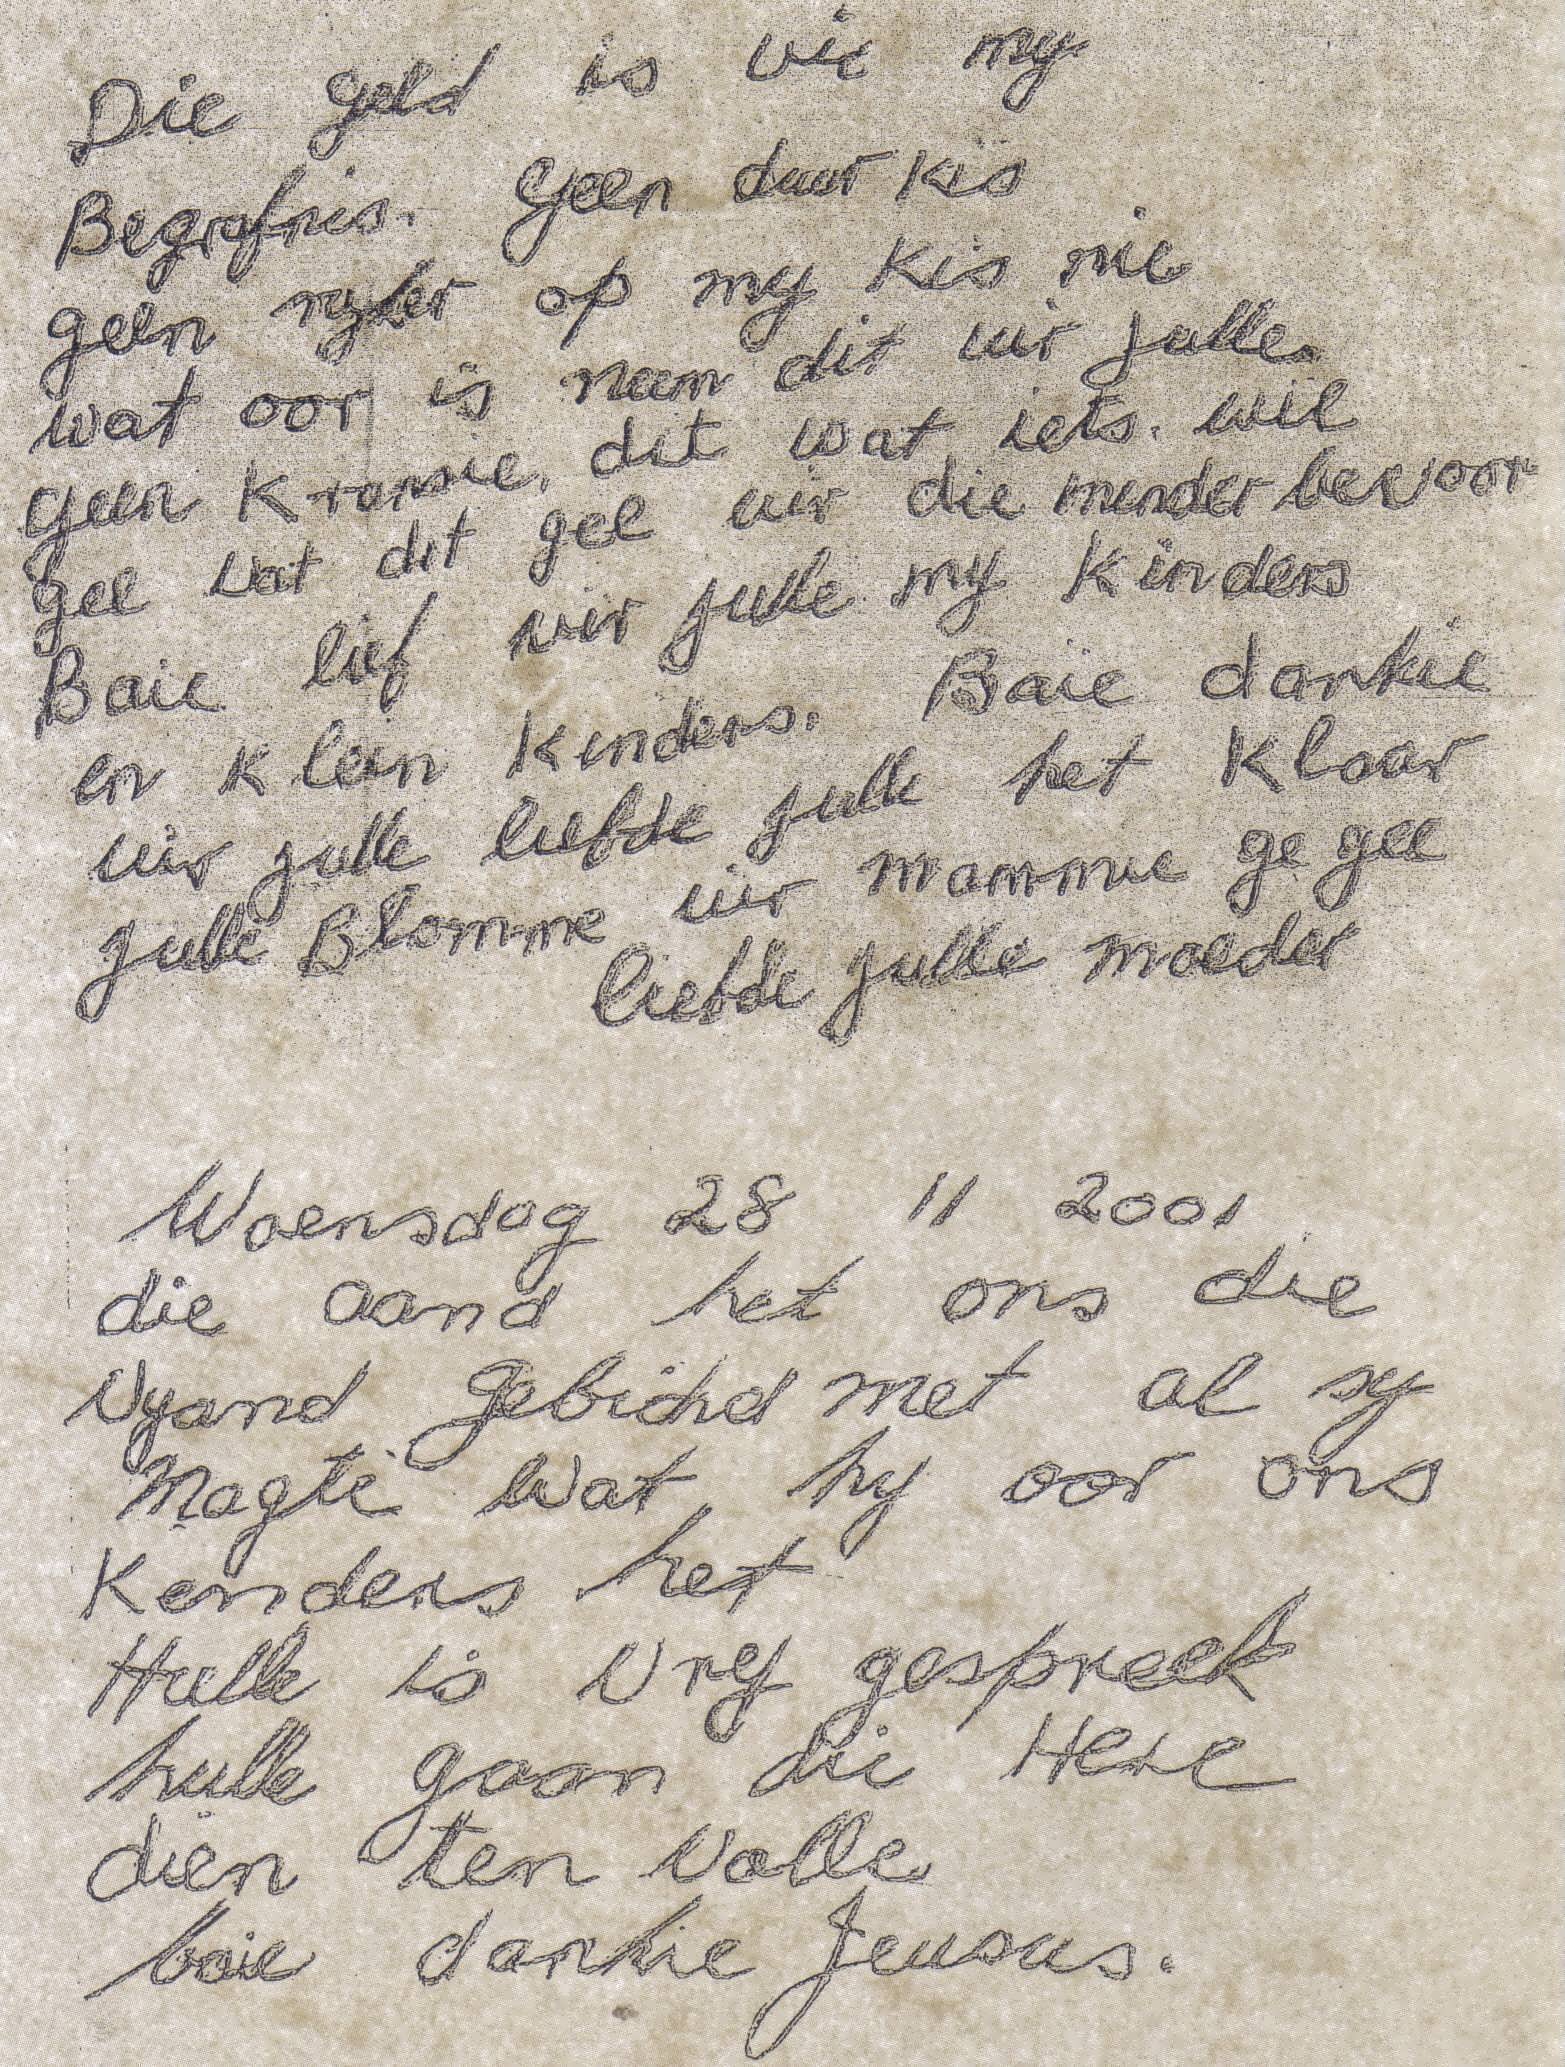 Die geld is vie my
Begrafnis. geen duur kis
geen op my kis nie
wat oor is neem dit vir julle.
geen Kransie, dit wat iets. wil
gee wat dit gee vir die minder bevoor
Baie lief vir julle my Kinders
en Klein Kinders. Baie dankie
vir julle liefde julle het Klaar
julle Blomme vir mammie ge gee
liefde julle moeder
Woensdag 28 11 2001
die aand het ons die
Vyand gebind met al sy
Magte wat hy oor ons
Kenders het
Hulle is Vry gespreek
hulle gaan die Here
dien ten Volle
baie dankie Jeusus.